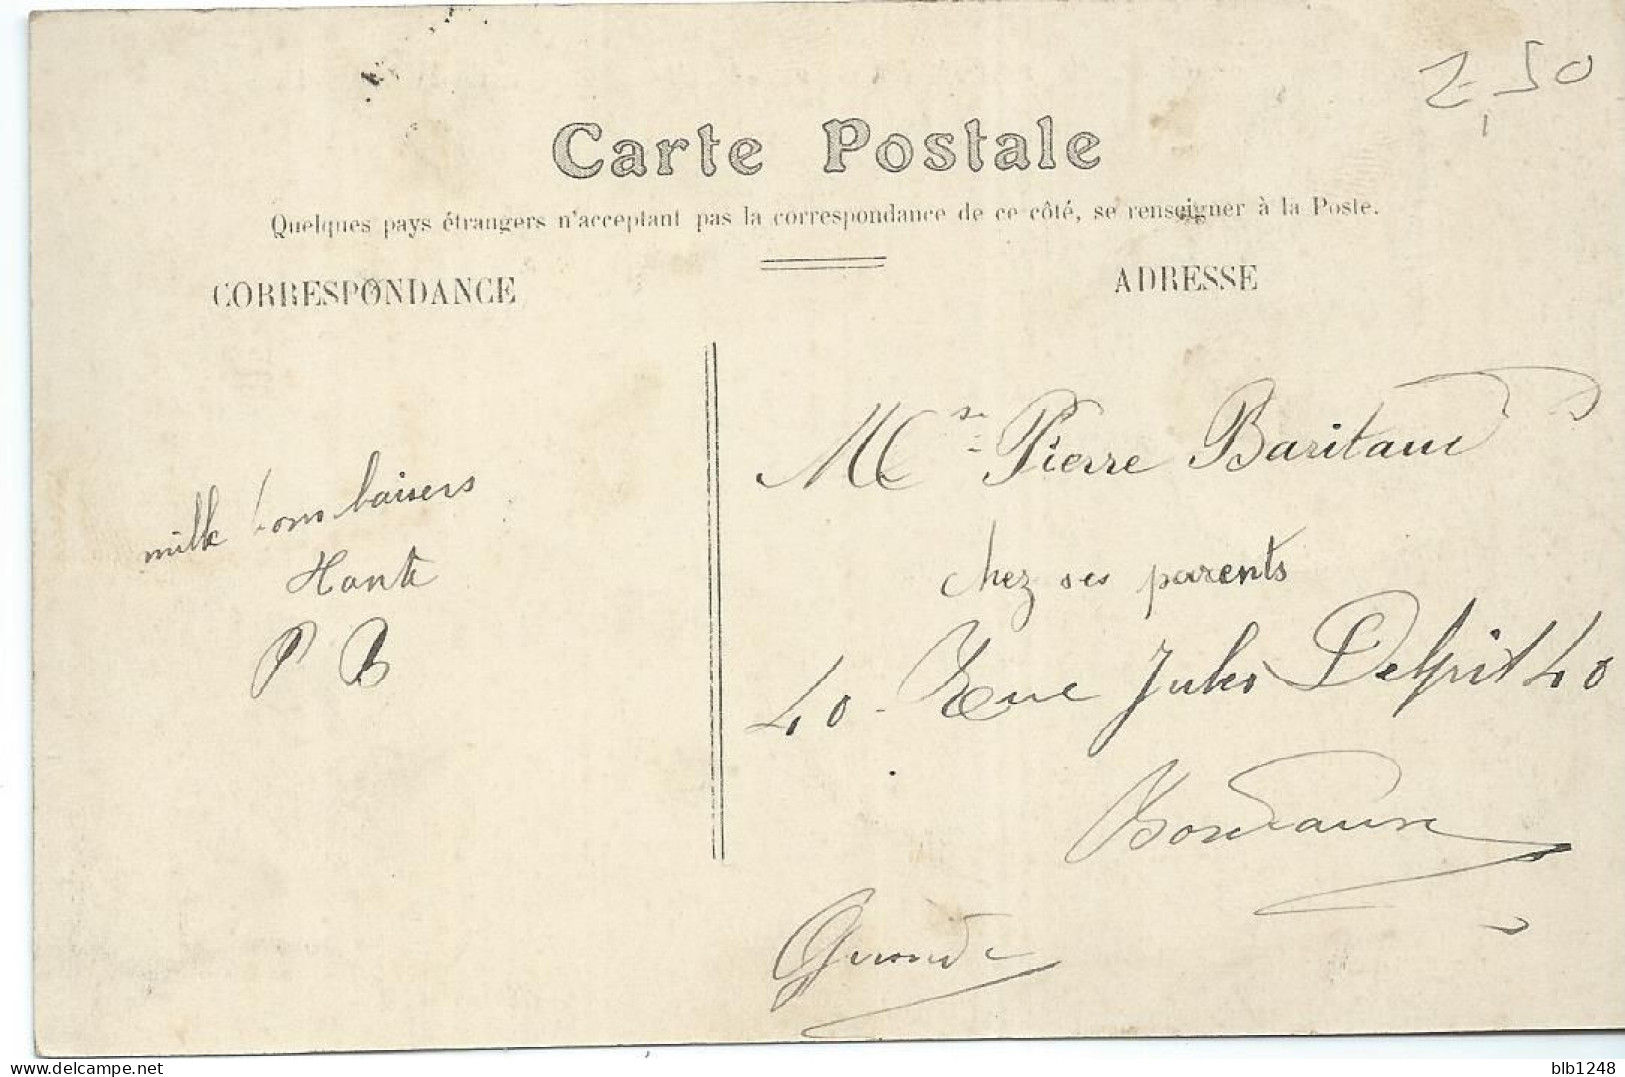 2,50
Carte Postale
Quelques pays étrangers n'acceptant pas la correspondance de ce côté, se renseigner à la Poste.
CORRESPONDANCE
ADRESSE
mille bons baisers
P B
Pierre Baritaud
chez ses parents
40 Rue Jules Delpit 40
Bordeaux
Gironde
delcampe.net
blb1248